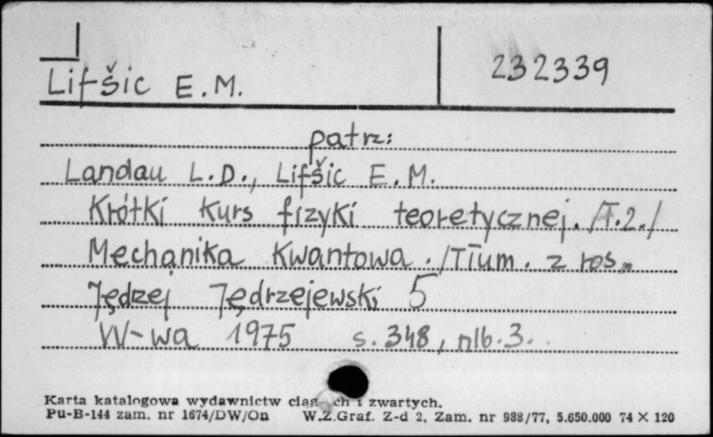 Lifšic E.M. 232339
patrz:
Landau L.D., Lifšic E.M.
Krótki kurs fizyki teoretycznej. /T.2./
Mechanika Kwantowa. /Tłum. z ros.
Jędzej Jędrzejewski 5
W-wa 1975 s. 348, nlb. 3.
Karta katalogowa wydawnictw i zwartych.
Pu-B-144 zam. nr 1674/DW/On W.Z.Graf. Z-d 2, Zam. nr 988/77, 5.650.000 74 X 120